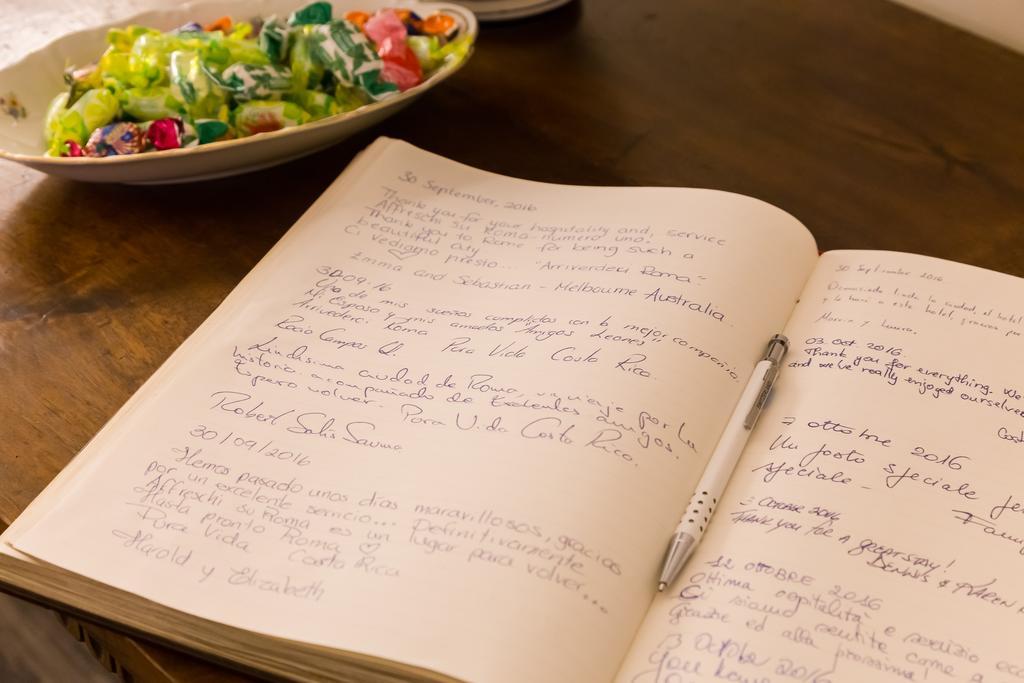 30 September, 2016
Thank you for your hospitality and, service
Affreschi su Roma numero uno.
Thank you to Rome for being such a
beautiful city
Ci vediamo presto... "Arriverderci Roma"
Emma and Sebastian - Melbourne Australia
30.09.16
Uno de mis sueños cumplidos con la mejor compania,
Mi Esposo y mis amados "Amigos Leones"
Arrivederci Roma Pura Vida Costa Rica.
Rocío Campos Q.
Lindísima ciudad de Roma, un viaje por la
historia acompañado de Exelentes amigos.
Espero volver. Pura Vida Costa Rica.
Robert Solís
30/09/2016
Hemos pasado unos días maravillosos, gracias
por un excelente servicio... Definitivamente
Affreschi su Roma es un lugar para volver...
Hasta pronto Roma
Pura Vida Costa Rica
Harold y Elizabeth
30 Septiembre 2016
linda la ciudad, el hotel
a este hotel, gracias por
y Laura.
03. oct 2016.
Thank you for everything. We
and we've really enjoyed ourselves
7 ottobre 2016
Un posto speciale
speciale
OCTOBER 2016
THANK YOU FOR A GREAT STAY!
DENNIS & KAREN
12 OTTOBRE 2016
Ottima ospitalità e servizio
Ci siamo sentite come a
Grazie ed alla prossima!
13 Ottobre 2016
You have